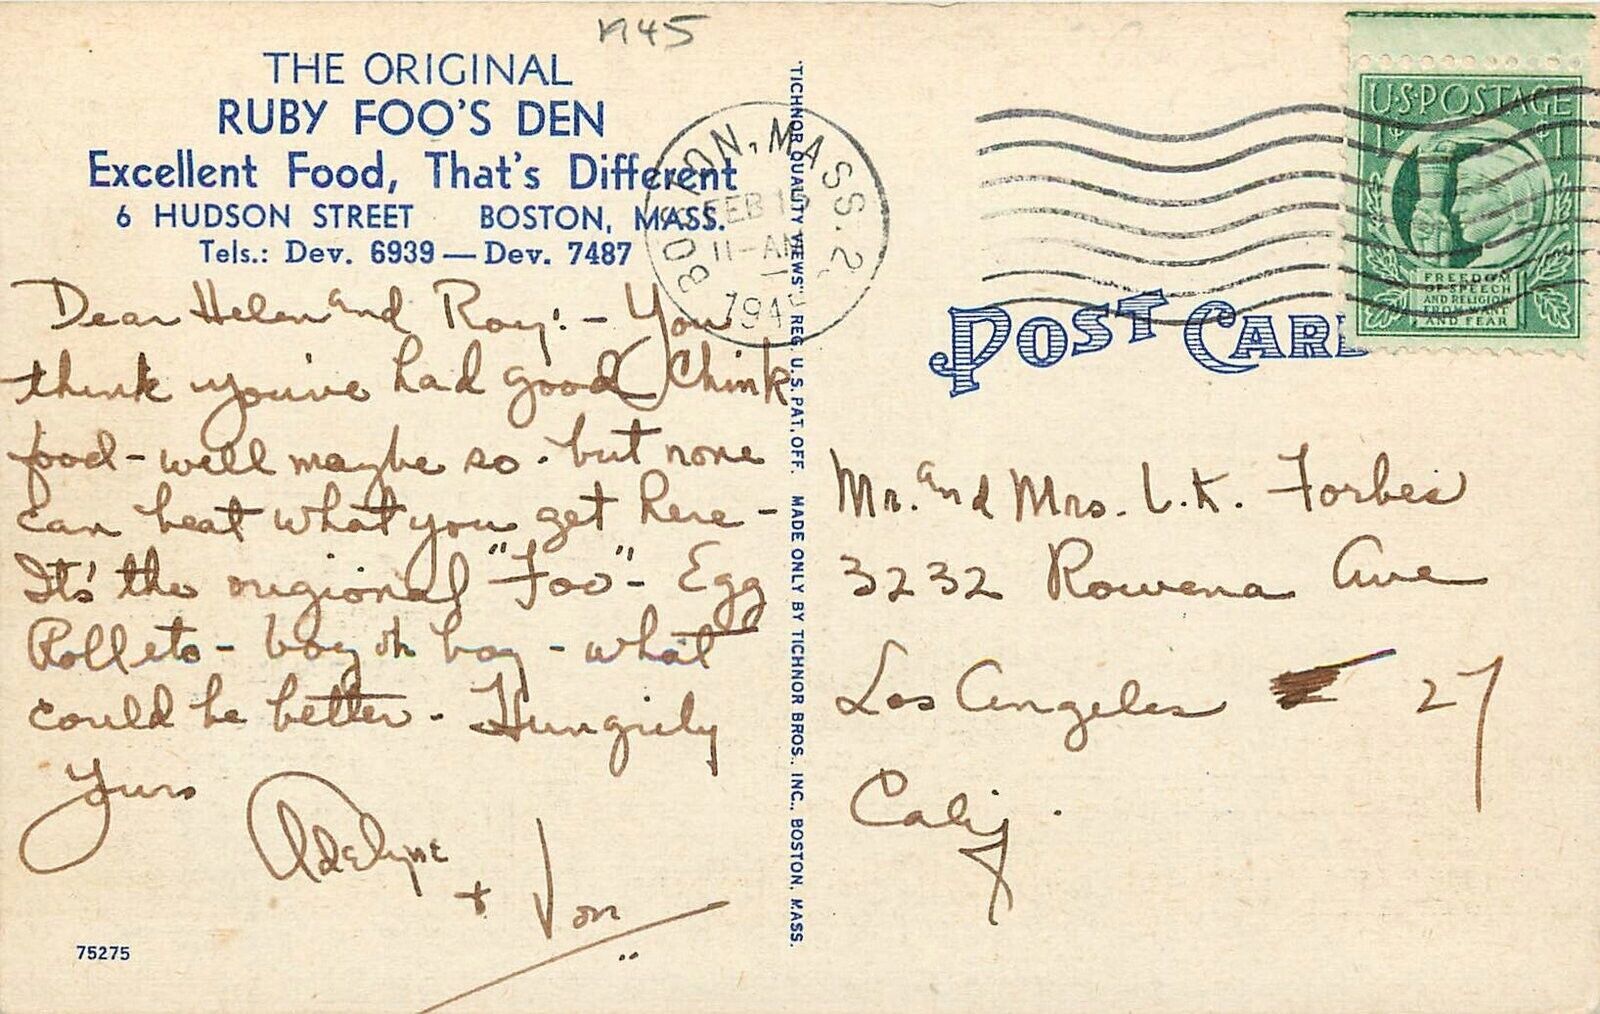 1945
THE ORIGINAL
RUBY FOO'S DEN
Excellent Food, That's Different
6 HUDSON STREET BOSTON, MASS.
Tels.: Dev. 6939 — Dev. 7487
Dear Helen and Roy:- You
think you've had good (Chink
food - well maybe so - but none
can beat what you get here -
It's the origional "Foo" - Egg
Roll etc - boy oh boy - what
could be better - Hungrily
Yurs
Adelyne
+ Von
75275
"TICHNOR QUALITY VIEWS," REG. U. S. PAT. OFF. MADE ONLY BY TICHNOR BROS., INC., BOSTON, MASS.
BOSTON, MASS. 2
FEB 1
11-AM
194
U·S·POSTAGE
1¢ 1¢
FREEDOM
OF SPEECH
AND RELIGION
FROM WANT
AND FEAR
POST CARD
Mr. and Mrs. L.K. Forbes
3232 Rowena Ave
Los Angeles 27
Calif.